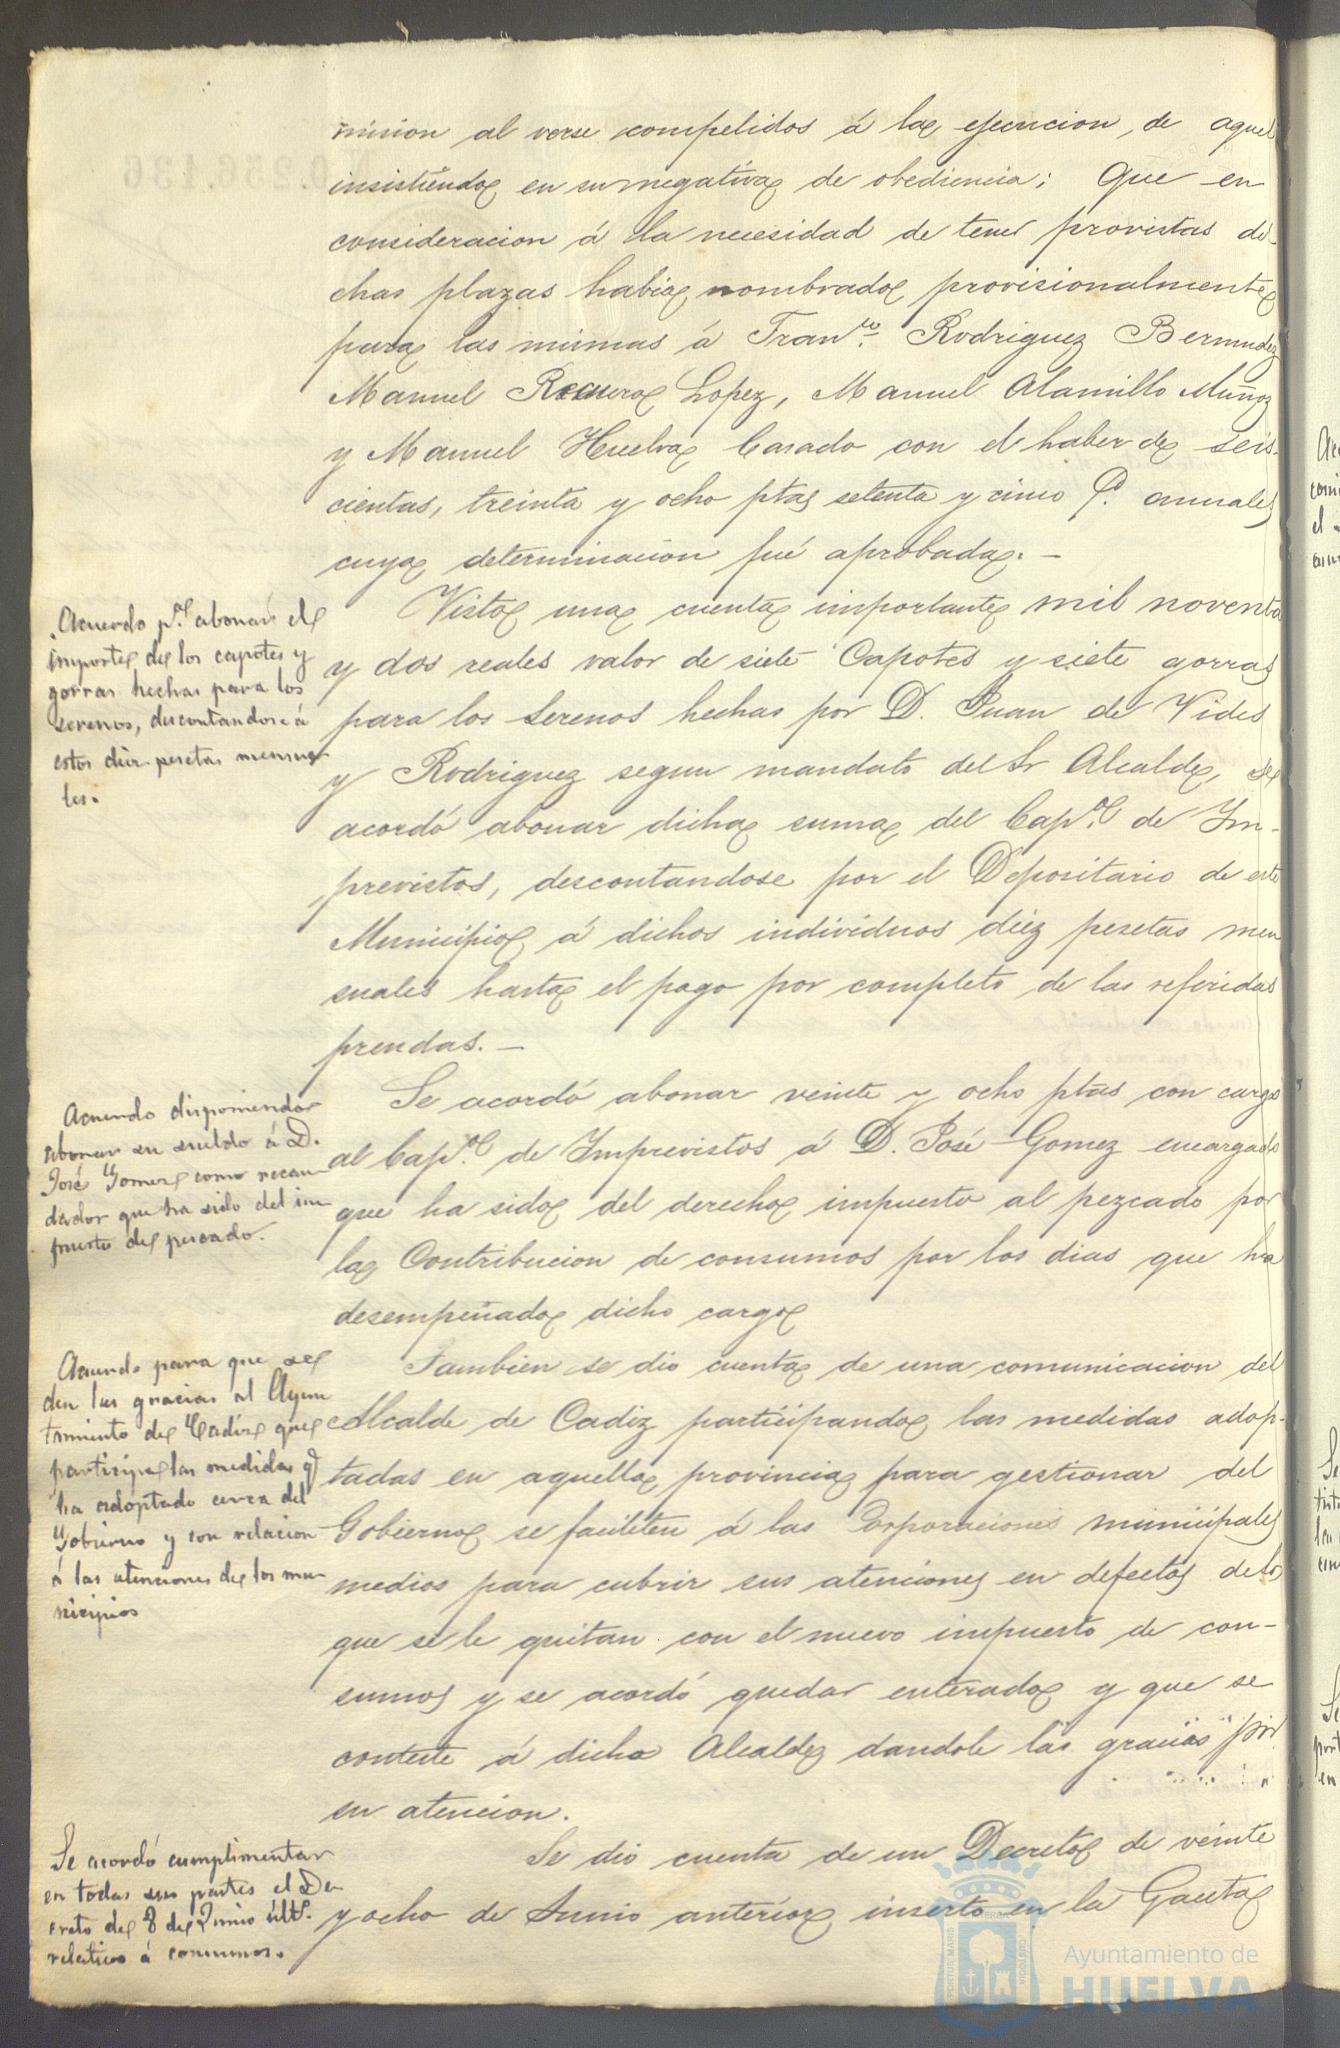 mision al verse compelidos á la ejecucion, de aquel
insistiendo en su negativa de obediencia; Que en
consideracion á la necesidad de tener provistas di-
chas plazas habia nombrado provisionalmente
para las mismas á Fran.co Rodriguez Bermudez
Manuel Recuero Lopez, Manuel Alamillo Muñoz
y Manuel Huelva Casado con el haber de seis-
cientas, treinta y ocho ptas setenta y cinco C.s anuales
cuya determinacion fué aprobada.—
Acuerdo p.a abonar el
importe de los capotes y
gorras hechas para los
serenos, descontandose á
estos diez pesetas mensua
les.
Vista una cuenta importante mil noventa
y dos reales valor de siete Capotes y siete gorras
para los Serenos hechas por D. Juan de Vides
y Rodriguez segun mandato del Sr Alcalde, se
acordó abonar dicha suma del Cap.o de Im-
previstos, descontandose por el Depositario de este
Municipio á dichos individuos diez pesetas men
suales hasta el pago por completo de las referidas
prendas.—
Acuerdo disponiendo
abonar su sueldo á D.
José Gomez como recau
dador que ha sido del im
puesto de pescado.
Se acordó abonar veinte y ocho ptas con cargo
al Cap.o de Imprevistos á D. José Gomez encargado
que ha sido del derecho impuesto al pezcado por
la Contribucion de consumos por los dias que ha
desempeñado dicho cargo
Acuerdo para que se
den las gracias al Ayun
tamiento de Cadiz que
participa las medidas q.
ha adoptado cerca del
Gobierno y con relacion
á las atenciones de los mu
nicipios
Tambien se dio cuenta de una comunicacion del
Alcalde de Cadiz participando las medidas adop-
tadas en aquella provincia para gestionar del
Gobierno se faciliten á las Corporaciones municipales
medios para cubrir sus atenciones en defectos de lo
que se le quitan con el nuevo impuesto de con-
sumos y se acordó quedar enterado y que se
conteste á dicho Alcalde dandole las gracias por
su atencion.
Se acordó cumplimentar
en todas sus partes el De
creto de 8 de Junio últ.
relativo á consumos.
Se dio cuenta de un Decreto de veinte
y ocho de Junio anterior inserto en la Gaceta
Ayuntamiento de
HUELVA